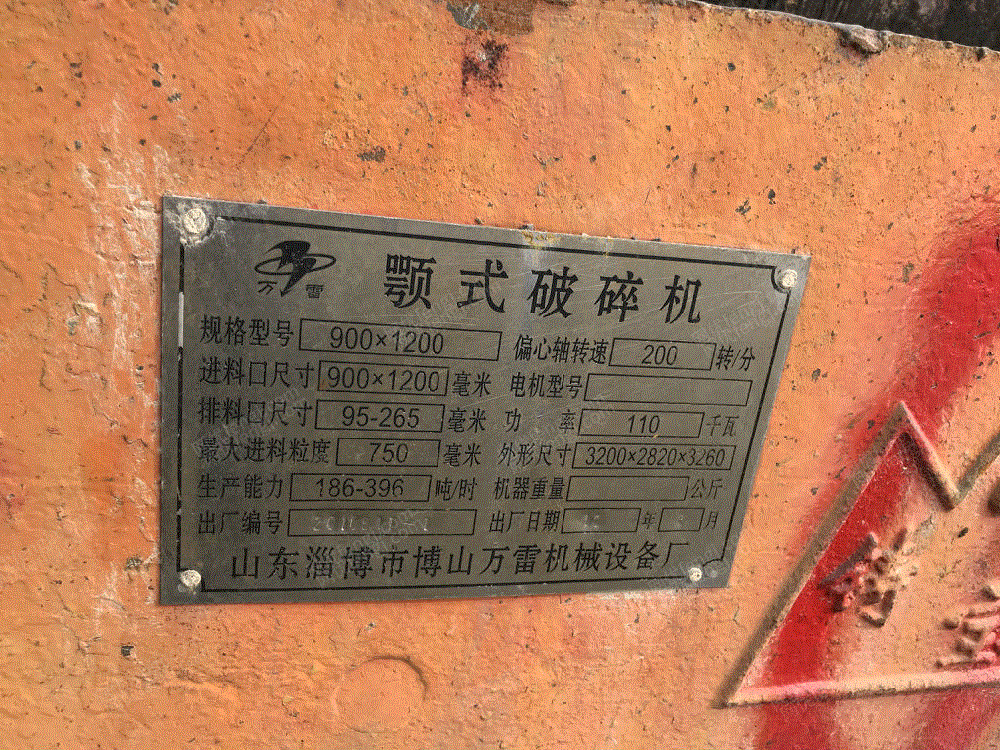 万雷
颚式破碎机
规格型号 900×1200 偏心轴转速 200 转/分
进料口尺寸 900×1200 毫米 电机型号
排料口尺寸 95-265 毫米 功率 110 千瓦
最大进料粒度 750 毫米 外形尺寸 3200×2820×3260
生产能力 186-396 吨/时 机器重量 公斤
出厂编号 出厂日期 年 月
山东淄博市博山万雷机械设备厂